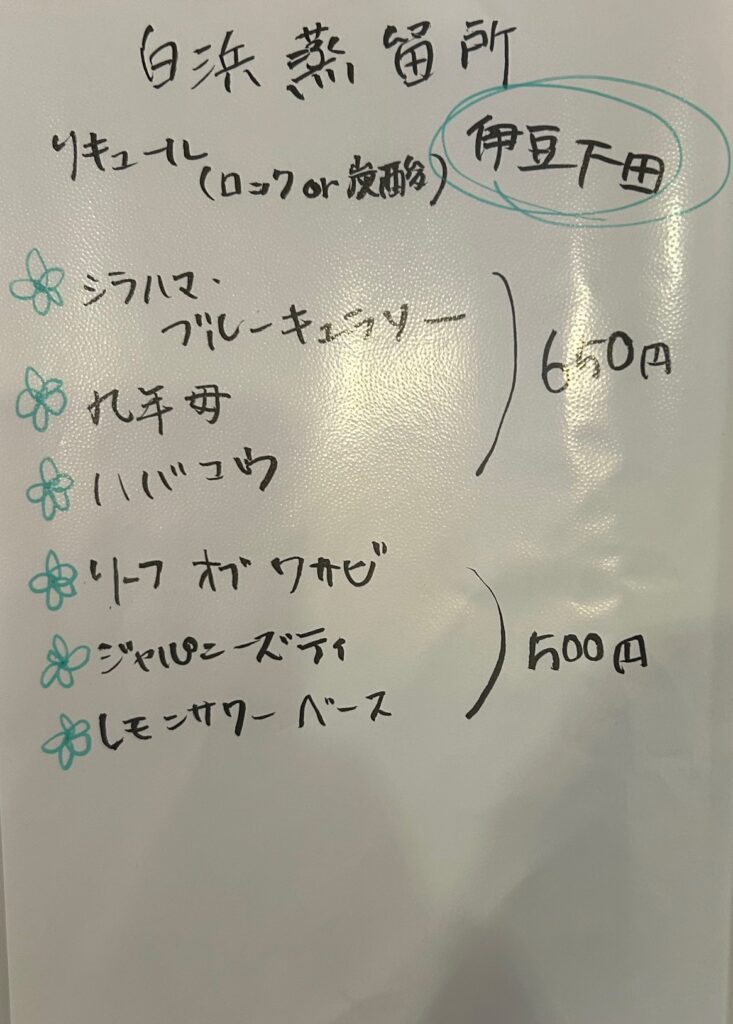 白浜蒸留所
リキュール
(ロックor炭酸)
伊豆下田
シラハマ・
ブルーキュラソー
九年母
ハバコウ
650円
リーフ オブ ワサビ
ジャパニーズティ
レモンサワー ベース
500円